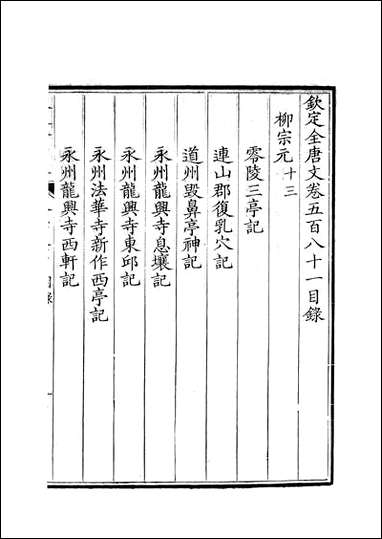 欽定全唐文卷五百八十一目錄
柳宗元十三
零陵三亭記
連山郡復乳穴記
道州毀鼻亭神記
永州龍興寺息壤記
永州龍興寺東邱記
永州法華寺新作西亭記
永州龍興寺西軒記